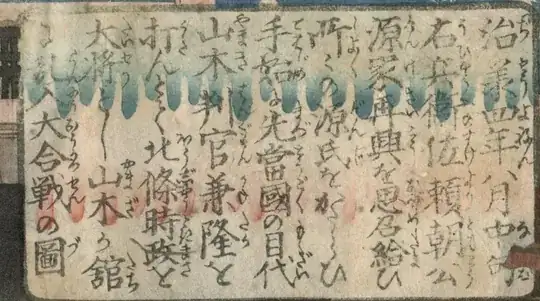 治承四年八月中旬
右兵衛佐頼朝公
源家再興を思召給ひ
所々の源氏をかたらひ
手始に先當國の目代
山木判官兼隆を
打んとて北條時政を
大将とし山木が舘
に乱入大合戦の圖